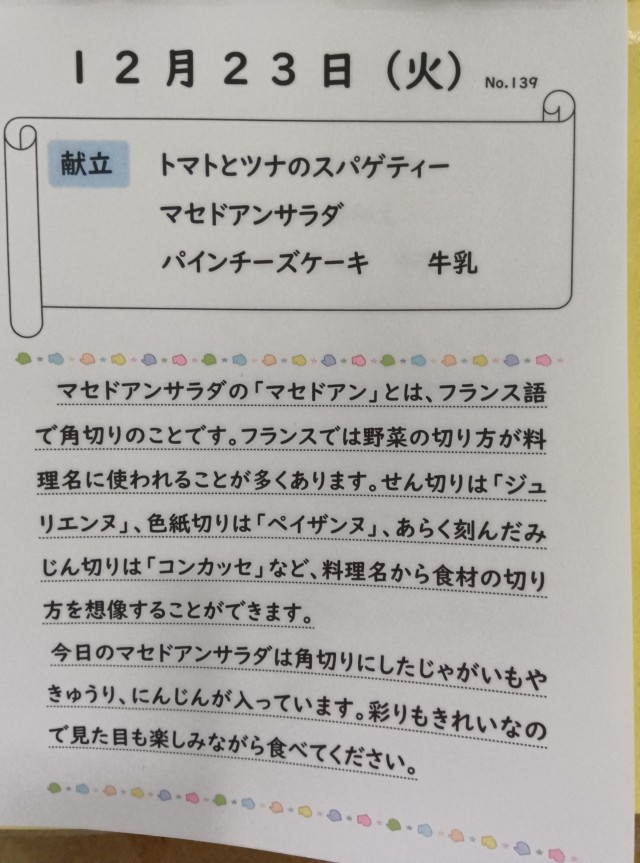 12月23日（火） No.139
献立 トマトとツナのスパゲティー
マセドアンサラダ
パインチーズケーキ 牛乳
マセドアンサラダの「マセドアン」とは、フランス語
で角切りのことです。フランスでは野菜の切り方が料
理名に使われることが多くあります。せん切りは「ジュ
リエンヌ」、色紙切りは「ペイザンヌ」、あらく刻んだみ
じん切りは「コンカッセ」など、料理名から食材の切り
方を想像することができます。
今日のマセドアンサラダは角切りにしたじゃがいもや
きゅうり、にんじんが入っています。彩りもきれいなの
で見た目も楽しみながら食べてください。